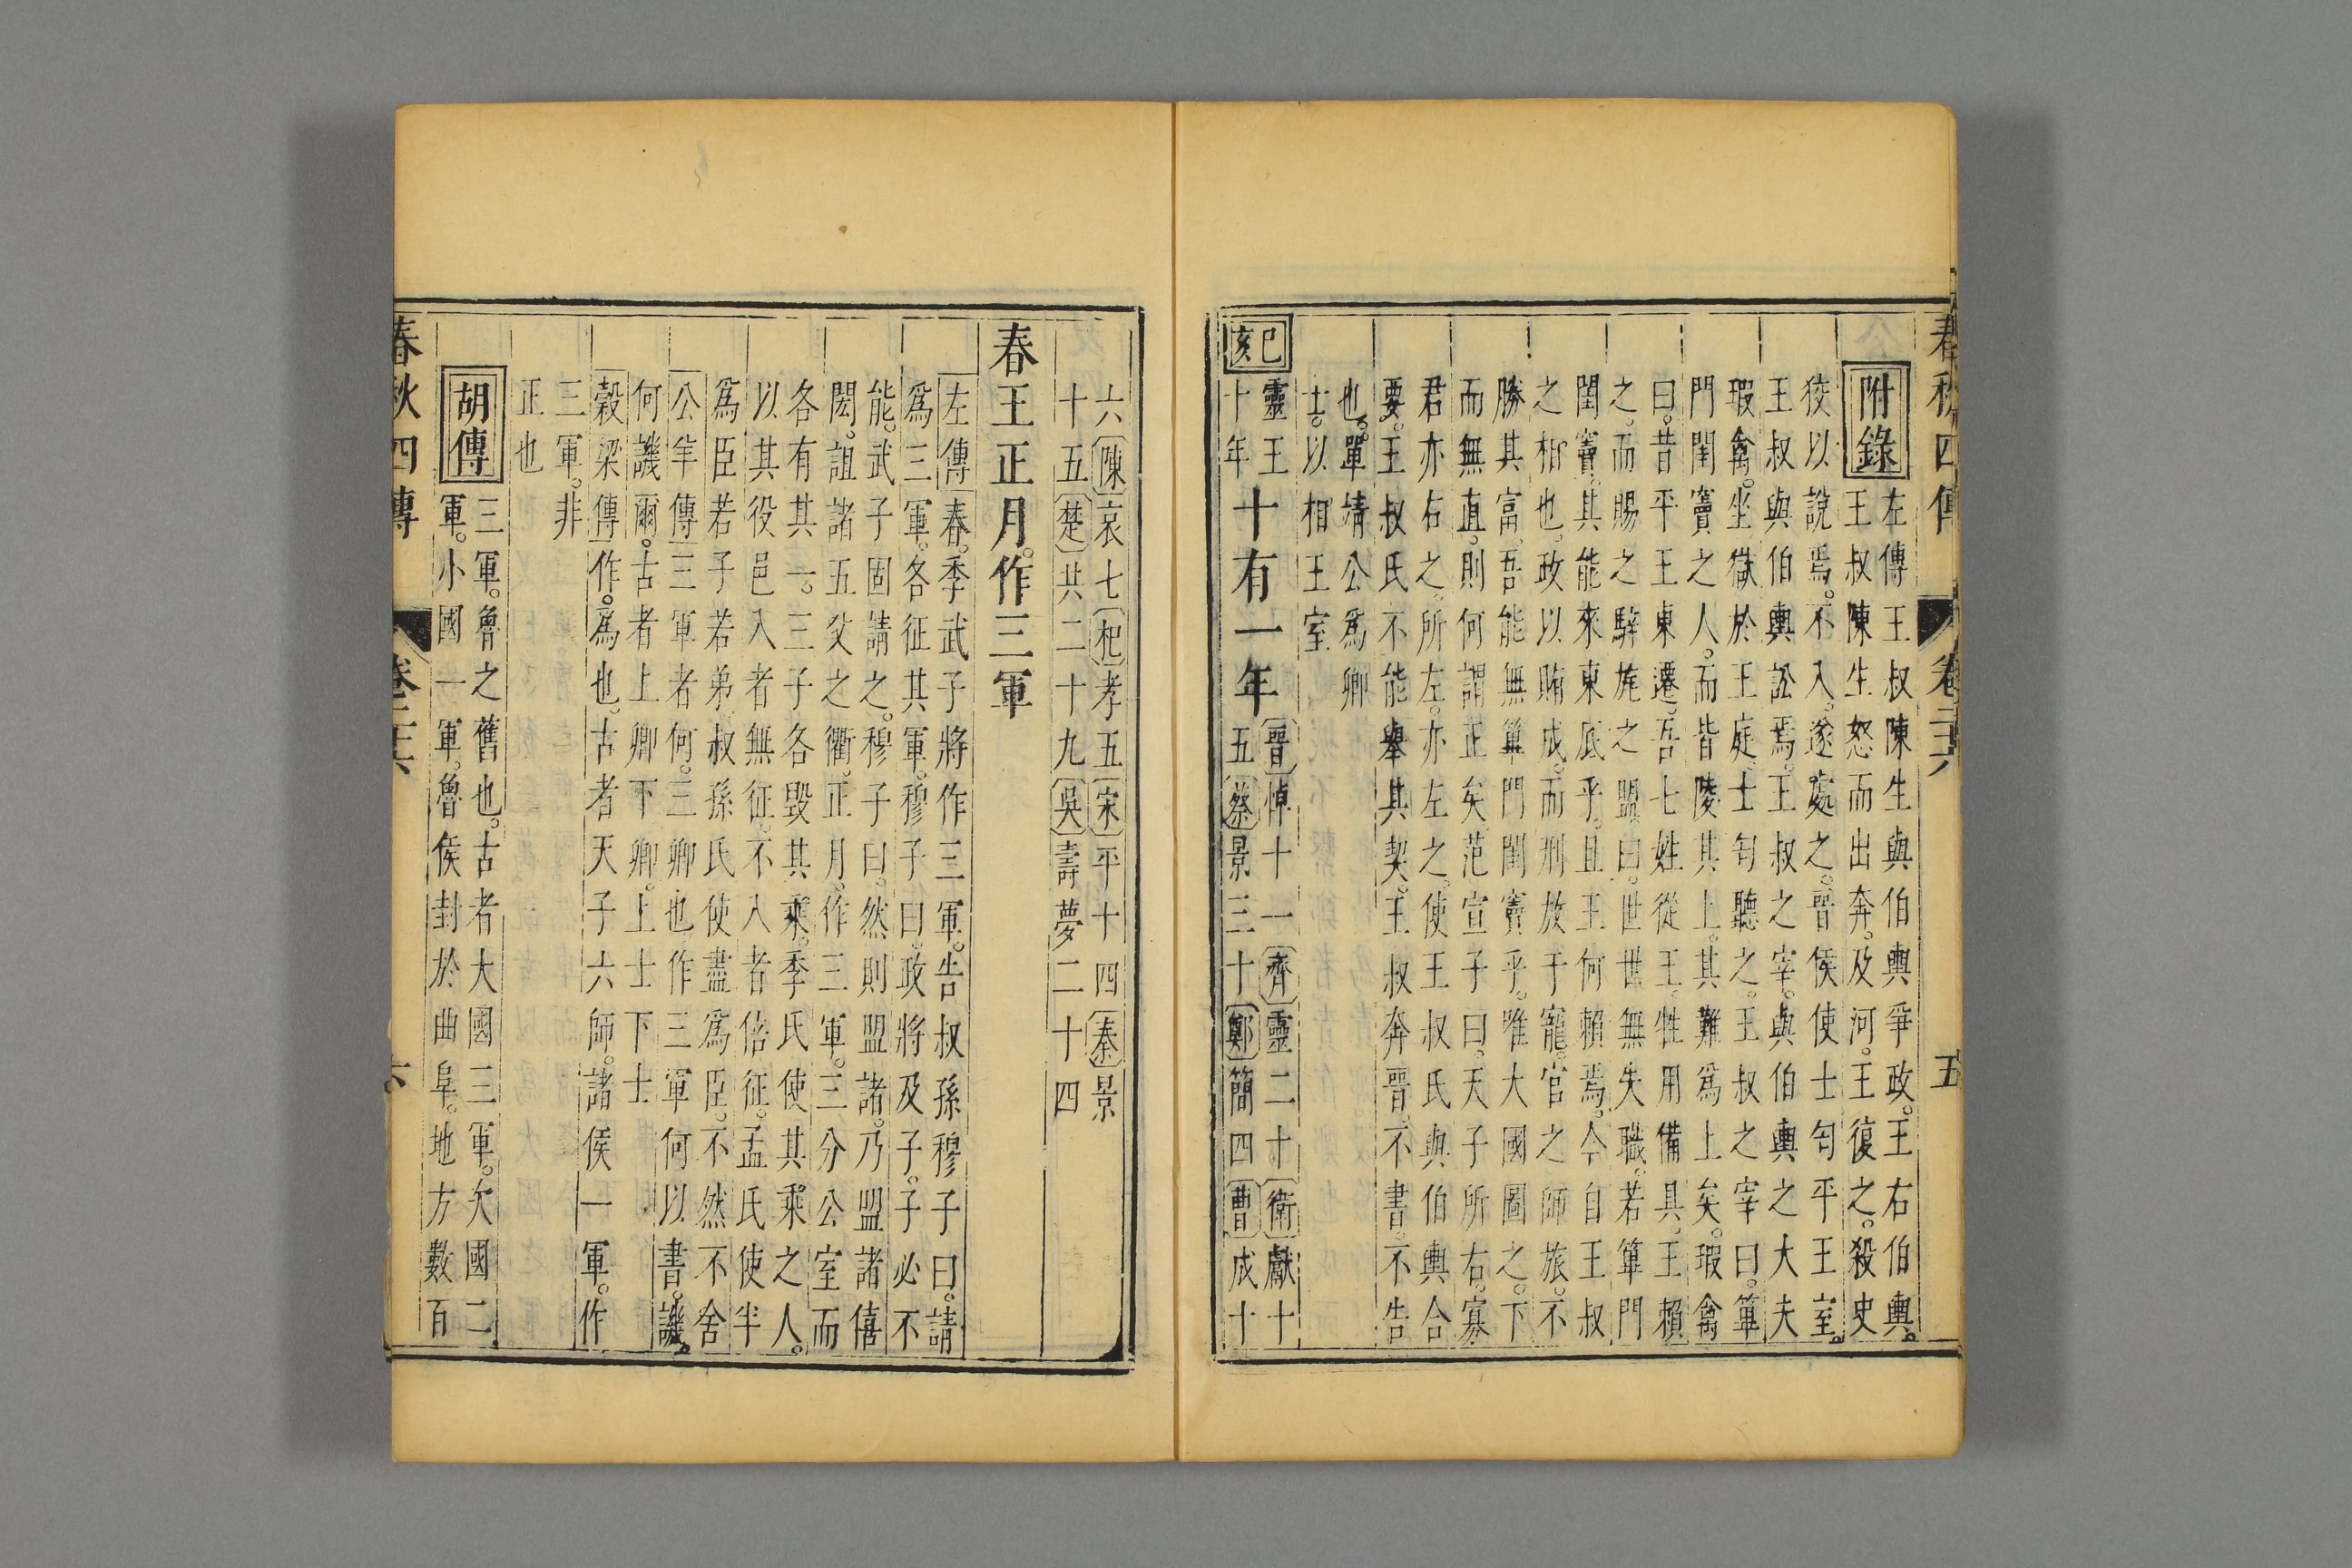 春秋四傳
卷二十六
五
附錄
左傳王叔陳生與伯輿爭政。王右伯輿。
王叔陳生怒而出奔。及河。王復之。殺史
狡以說焉。不入。遂處之。晉侯使士匄平王室。
王叔與伯輿訟焉。王叔之宰。與伯輿之大夫
瑕禽。坐獄於王庭。士匄聽之。王叔之宰曰。篳
門閨竇之人。而皆陵其上。其難爲上矣。瑕禽
曰。昔平王東遷。吾七姓從王。牲用備具。王賴
之。而賜之騂旄之盟。曰。世世無失職。若篳門
閨竇。其能來東底乎。且王何賴焉。今自王叔
之相也。政以賄成。而刑放于寵。官之師旅。不
勝其富。吾能無篳門閨竇乎。唯大國圖之。下
而無直。則何謂正矣。范宣子曰。天子所右。寡
君亦右之。所左。亦左之。使王叔氏與伯輿合
要。王叔氏不能舉其契。王叔奔晉。不書。不告
也。單靖公爲卿
士。以相王室
己亥
靈王
十年
十有一年
晉悼十一齊靈二十衛獻十
五蔡景三十鄭簡四曹成十
六陳哀七杞孝五宋平十四秦景
十五楚共二十九吳壽夢二十四
春王正月。作三軍
左傳春。季武子將作三軍。告叔孫穆子曰。請
爲三軍。各征其軍。穆子曰。政將及子。子必不
能。武子固請之。穆子曰。然則盟諸。乃盟諸僖
閎。詛諸五父之衢。正月。作三軍。三分公室而
各有其一。三子各毀其乘。季氏使其乘之人。
以其役邑入者無征。不入者倍征。孟氏使半
爲臣若子若弟。叔孫氏使盡爲臣。不然不舍
公羊傳三軍者何。三卿也作三軍何以書。譏。
何譏爾。古者上卿下卿。上士下士
穀梁傳作。爲也。古者天子六師。諸侯一軍。作
三軍。非
正也
胡傳
三軍。魯之舊也。古者大國三軍。次國二
軍。小國一軍。魯侯封於曲阜。地方數百
春秋四傳
卷二十六
六